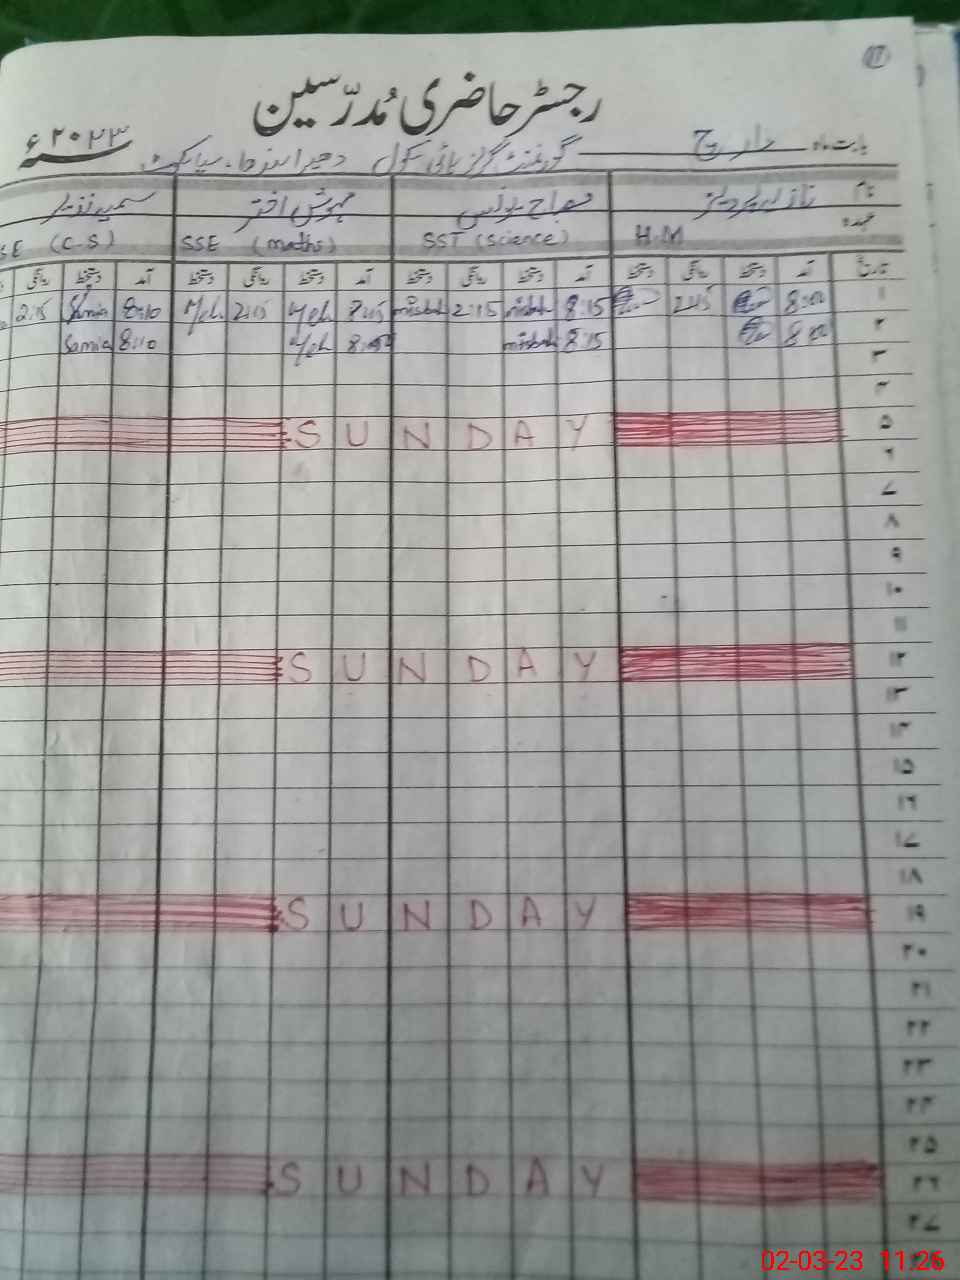 17
رجسٹر حاضری مُدرّسین
بابت ماہ مارچ گورنمنٹ گرلز ہائی سکول سیالکوٹ ۲۰۲۳ء
نام نازلہ پرویز مصباح یونس مہوش اختر سمیہ نذیر
عہدہ H.M SST (Science) SSE (maths) SE (C.S)
تاریخ آمد دستخط روانگی دستخط آمد دستخط روانگی دستخط آمد دستخط روانگی دستخط آمد دستخط روانگی
۱ 8:00 2:15 8:15 misbah 2:15 misbah 2:15 8:10 Samia 2:15
۲ 8:00 8:15 misbah 8:10 Samia
۳
۴
۵ SUNDAY
۶
۷
۸
۹
۱۰
۱۱
۱۲ SUNDAY
۱۳
۱۴
۱۵
۱۶
۱۷
۱۸
۱۹ SUNDAY
۲۰
۲۱
۲۲
۲۳
۲۴
۲۵
۲۶ SUNDAY
۲۷
02-03-23 11:26